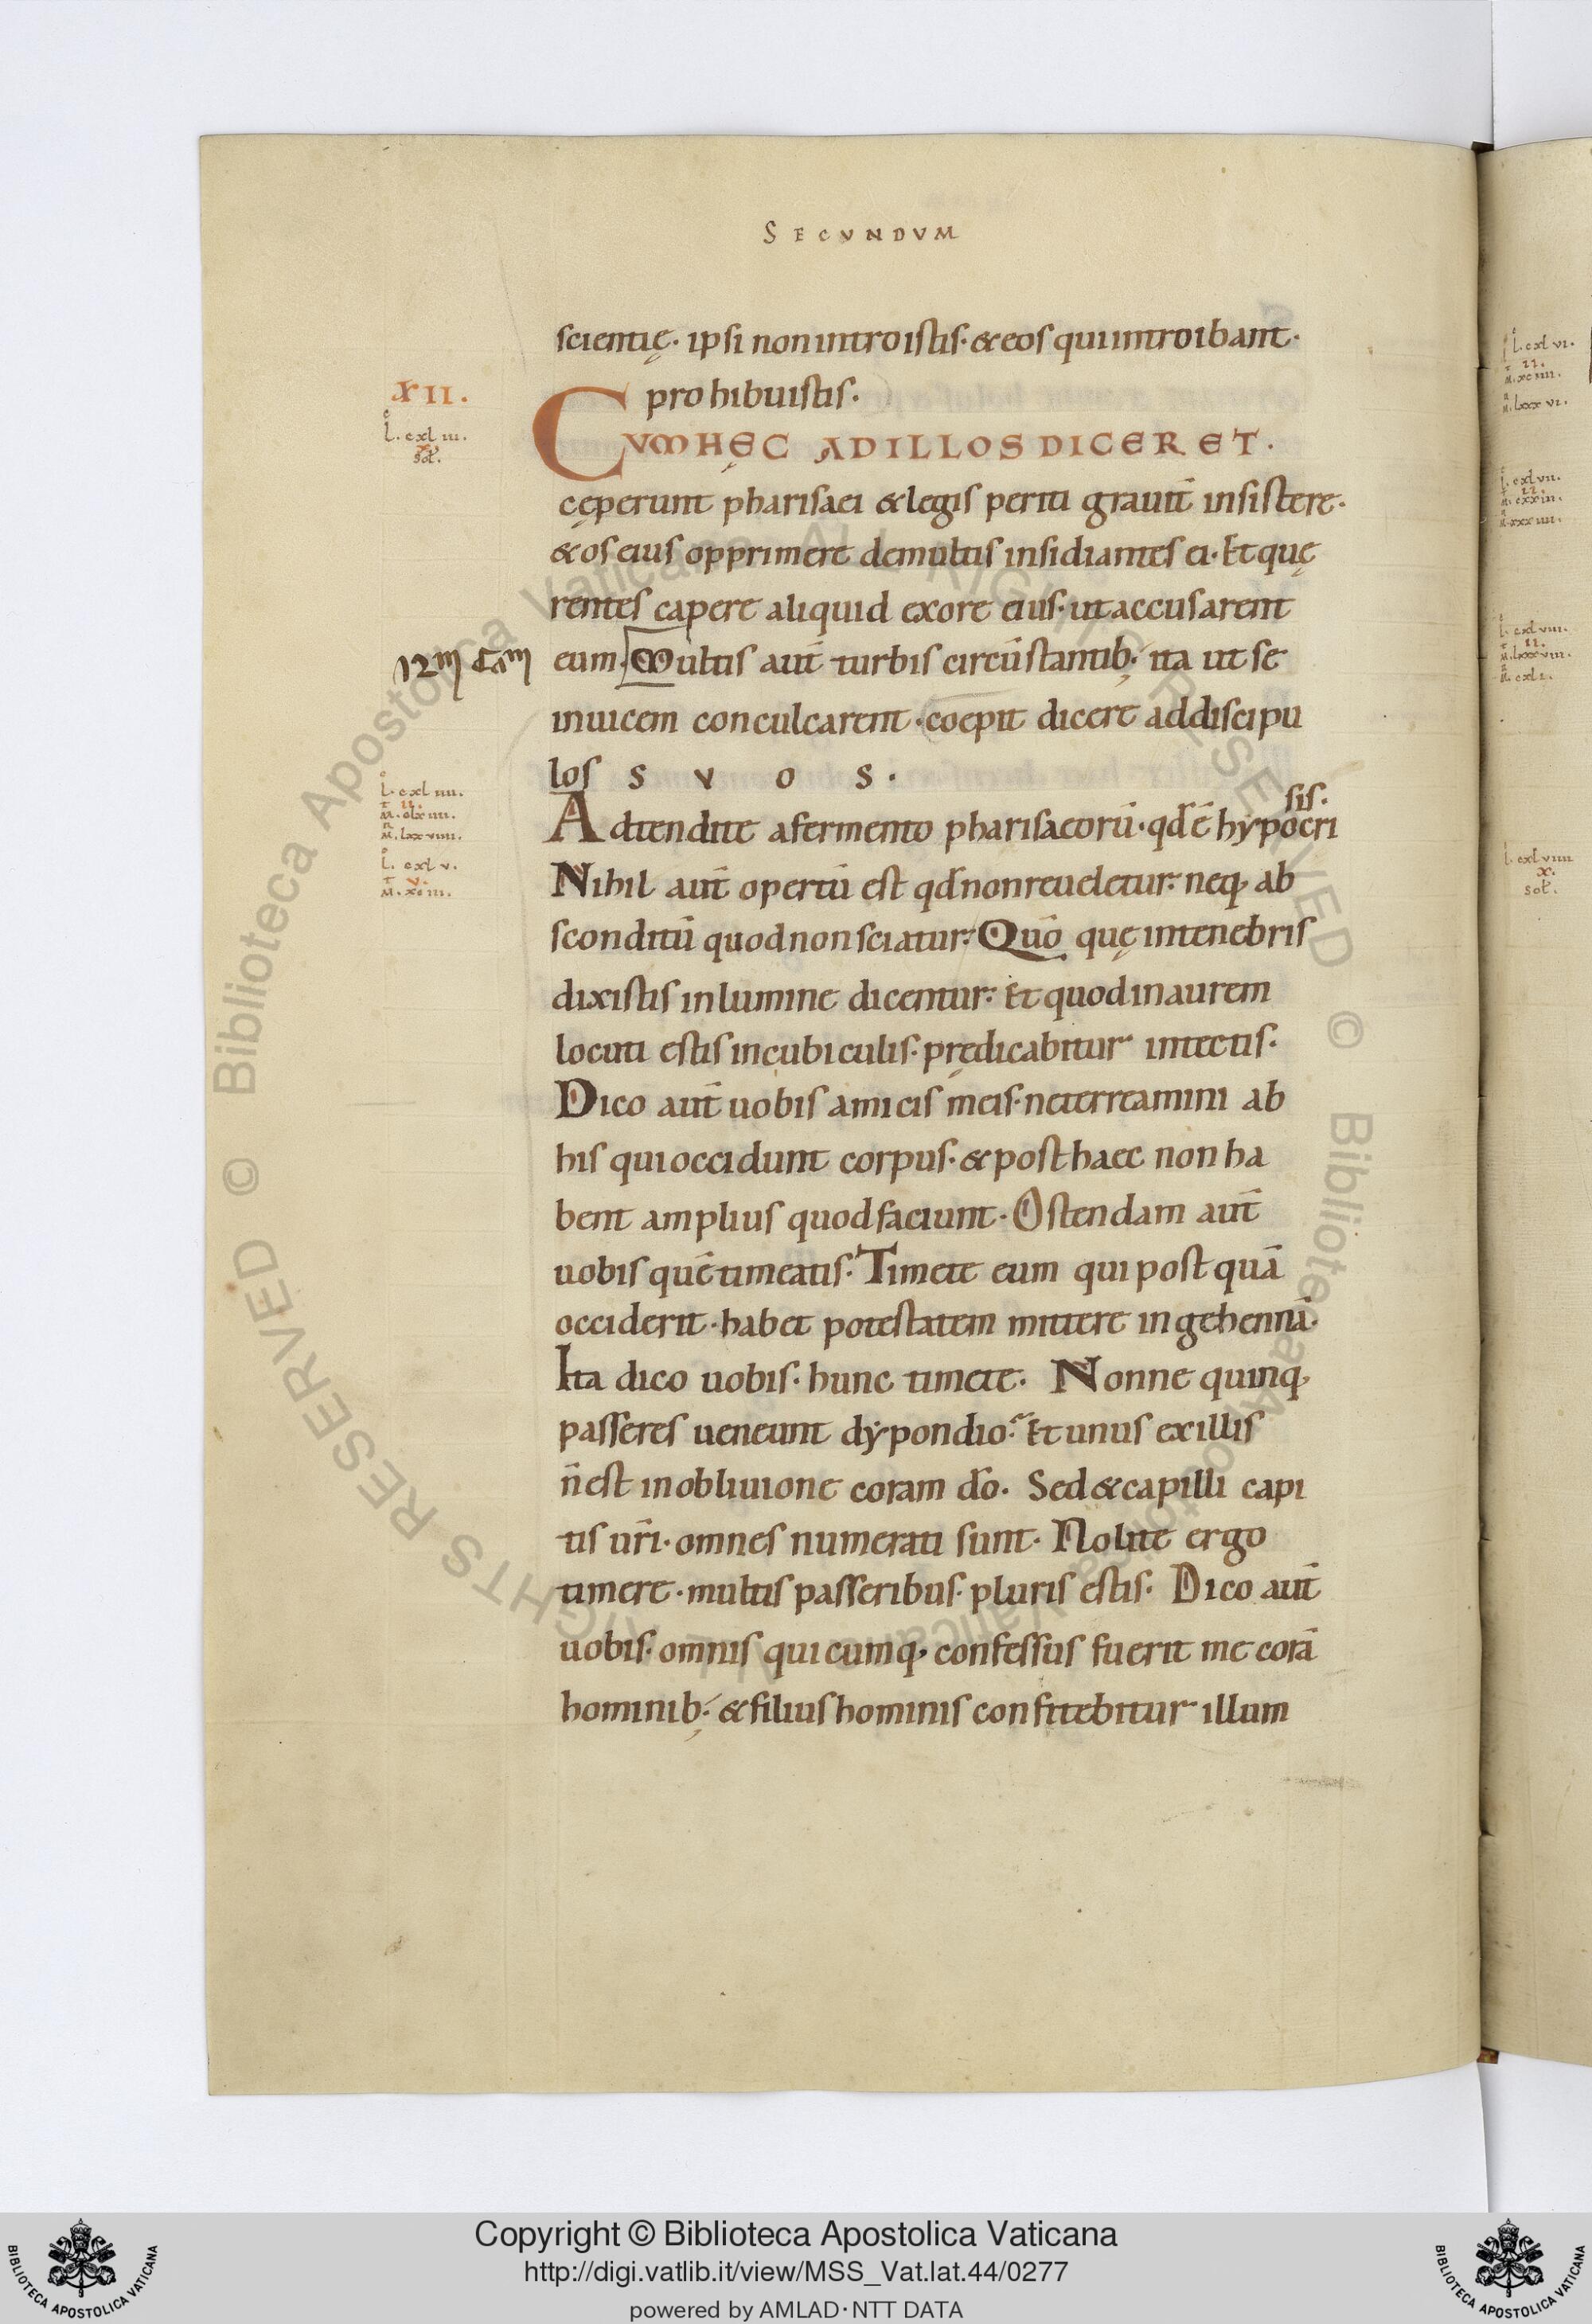 SECUNDUM
scientię· ipsi non introistis· & eos qui introibant·
prohibuistis·
XII.
CUM HĘC AD ILLOS DICERET.
L. cxl iii.
x.
sol.
cęperunt pharisaei & legis periti grauit̄ insistere·
& os eius opprimere de multis insidiantes ei· Et quę
rentes capere aliquid ex ore eius· ut accusarent
12m Cam
eum· Multis aut̄ turbis circū stantib; ita ut se
inuicem conculcarent· coepit dicere ad discipu
los S V O S .
L. cxl iiii.
II.
M. clx iiii.
M. lxx viiii.
Adtendite a fermento pharisaeorū· qd̄ ē hypocri
sis.
L. cxl v.
V.
M. xc iii.
Nihil aut̄ opertū est qd̄ non reueletur: neq; ab
sconditū quod non sciatur: Quō quę in tenebris
dixistis in lumine dicentur: Et quod in aurem
locuti estis in cubiculis· prędicabitur in tectis·
Dico aut̄ uobis amicis meis· ne terreamini ab
his qui occidunt corpus· & post haec non ha
bent amplius quod faciunt· Ostendam aut̄
uobis quē timeatis· Timete eum qui post quā
occiderit· habet potestatem mittere in gehennā·
Ita dico uobis· hunc timete· Nonne quinq;
passeres ueneunt dypondio: Et unus ex illis
n̄ est in obliuione coram dō. Sed & capilli capi
tis ur̄i· omnes numerati sunt· Nolite ergo
timere· multis passeribus· pluris estis· Dico aut̄
uobis· omnis quicumq; confessus fuerit me corā
hominib; & filius hominis confitebitur illum
L. cxl vi.
II.
M. xc iiii.
M. lxxx vi.
L. cxl vii.
II.
M. cxx iii.
M. xxx iiii.
L. cxl viii.
II.
M. lxxx viii.
L. cxl viiii
x.
sol.
© Biblioteca Apostolica Vaticana ALL RIGHTS RESERVED
© Biblioteca Apostolica Vaticana ALL RIGHTS RESERVED
Copyright © Biblioteca Apostolica Vaticana
http://digi.vatlib.it/view/MSS_Vat.lat.44/0277
powered by AMLAD·NTT DATA
BIBLIOTECA APOSTOLICA VATICANA
BIBLIOTECA APOSTOLICA VATICANA